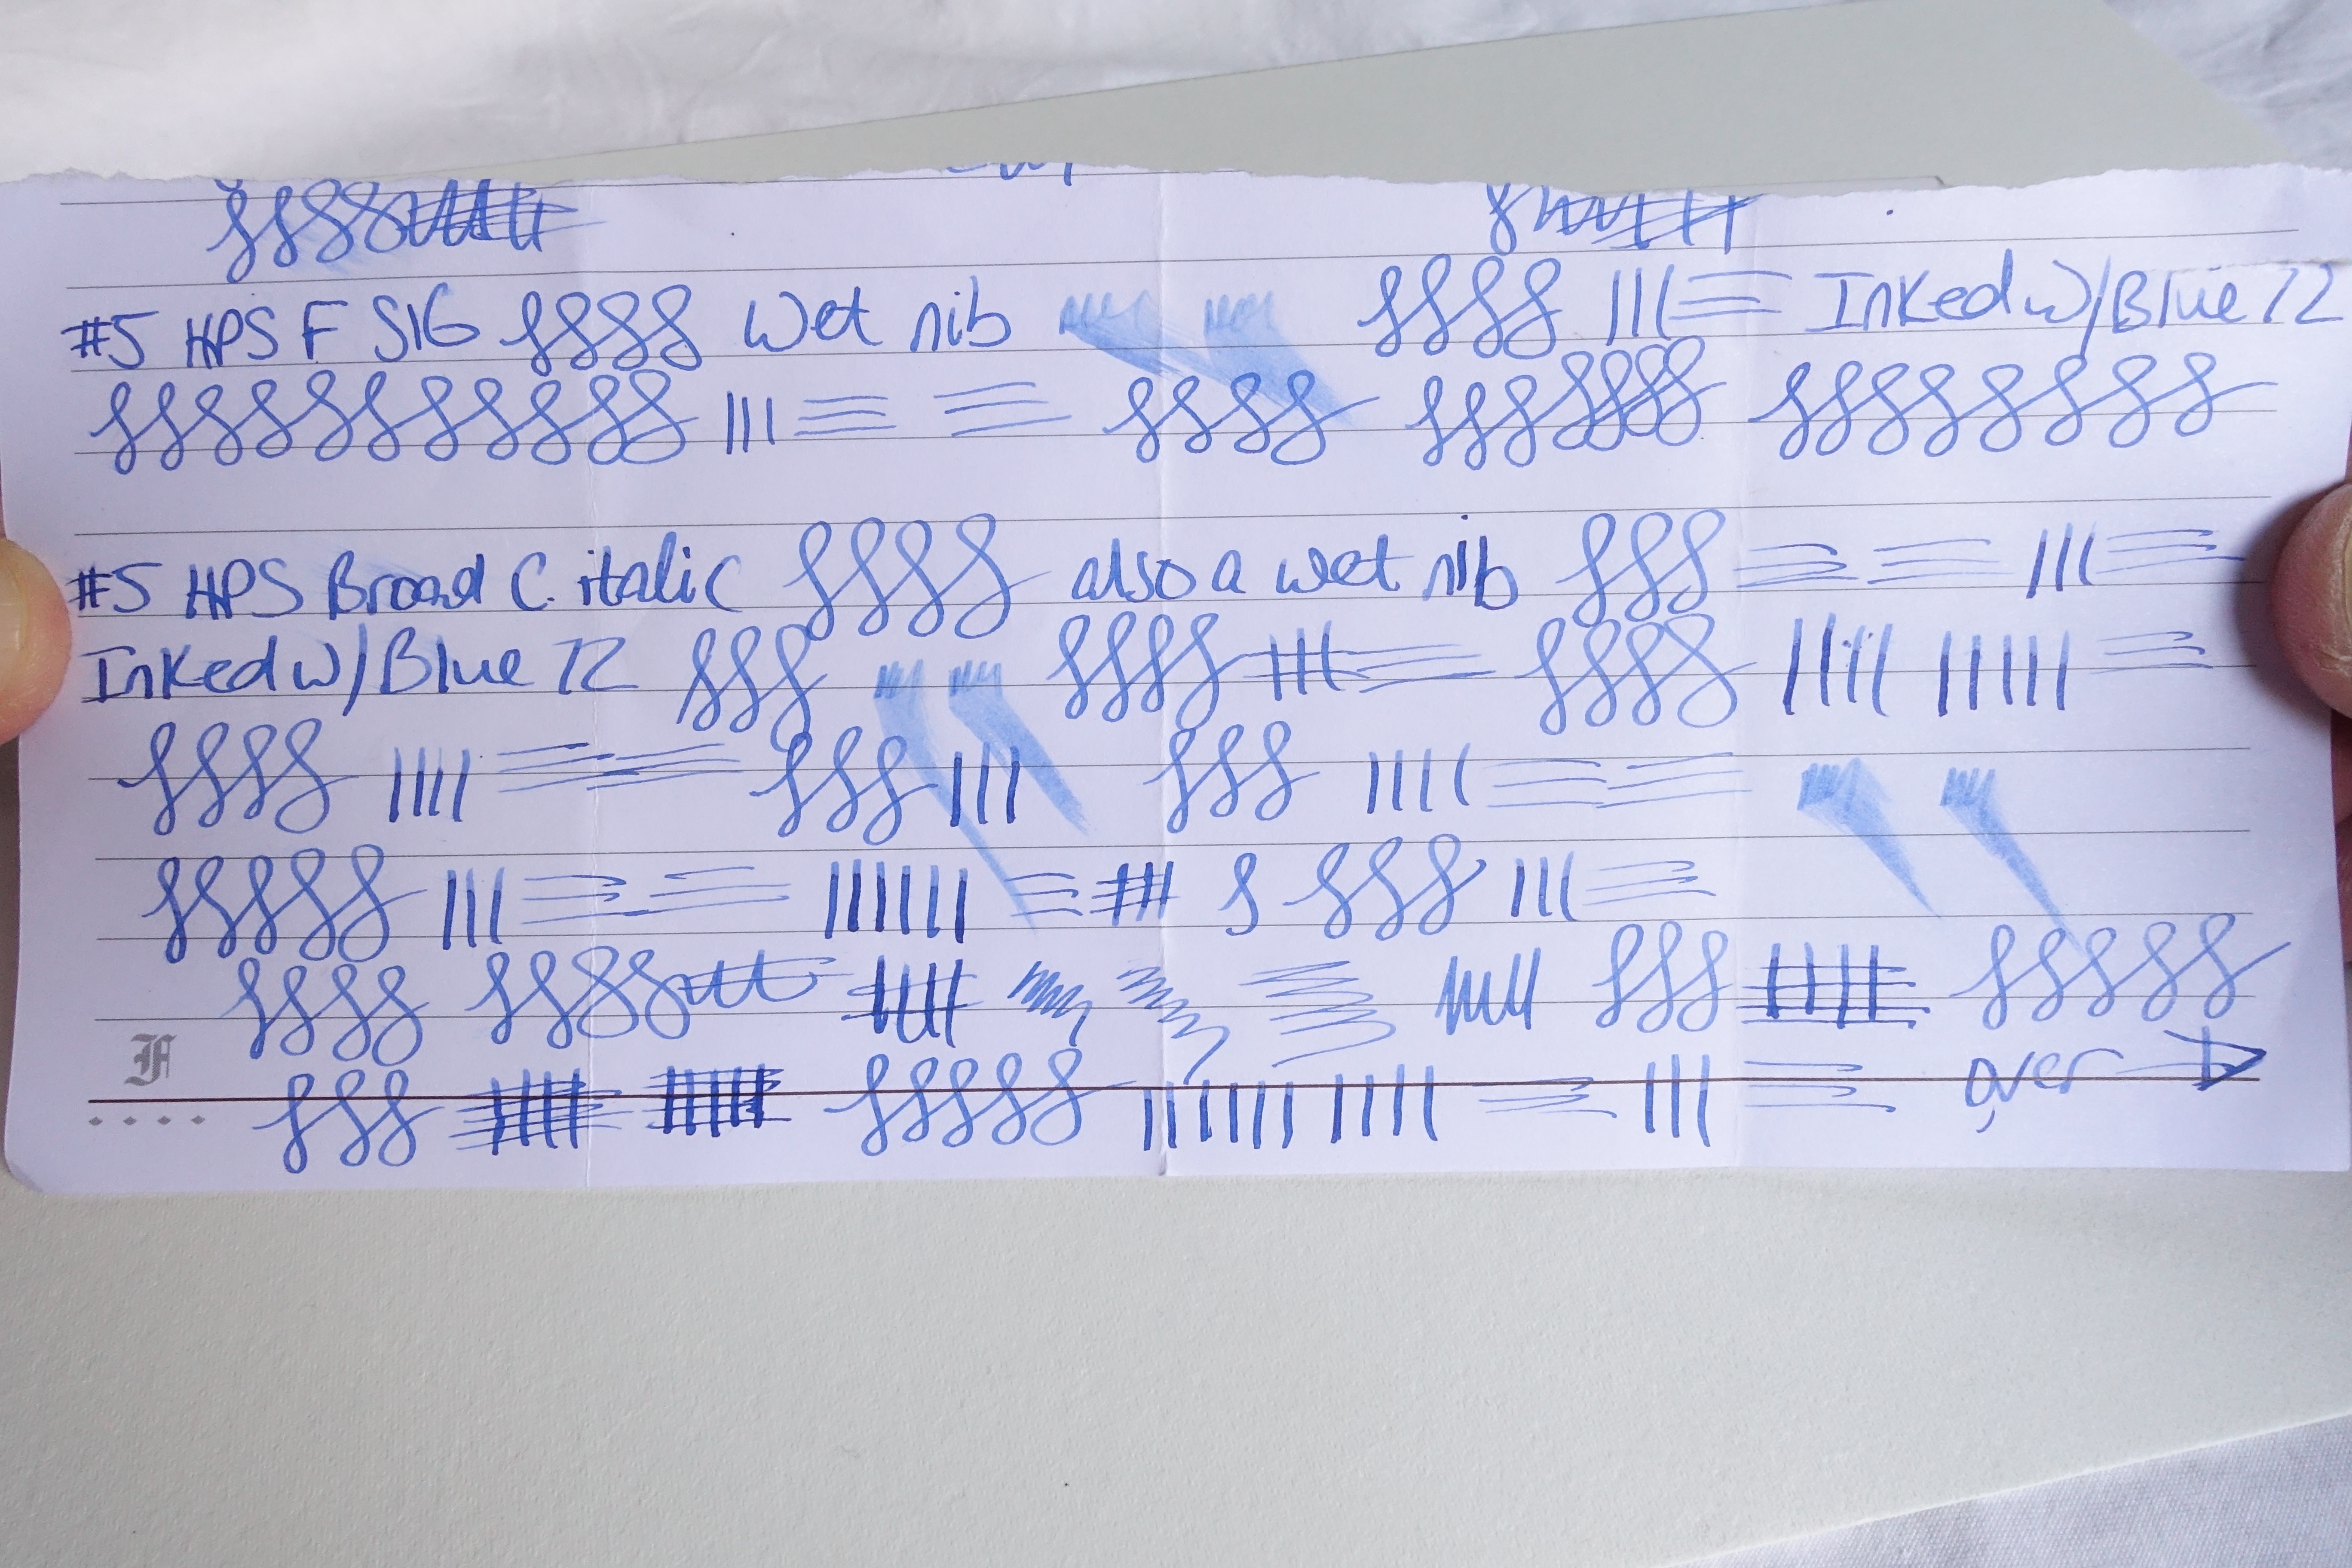 #5 HPS F SIG Wet nib Inked w/Blue 72
#5 HPS Broad C. italic also a wet nib
Inked w/Blue 72
F
over